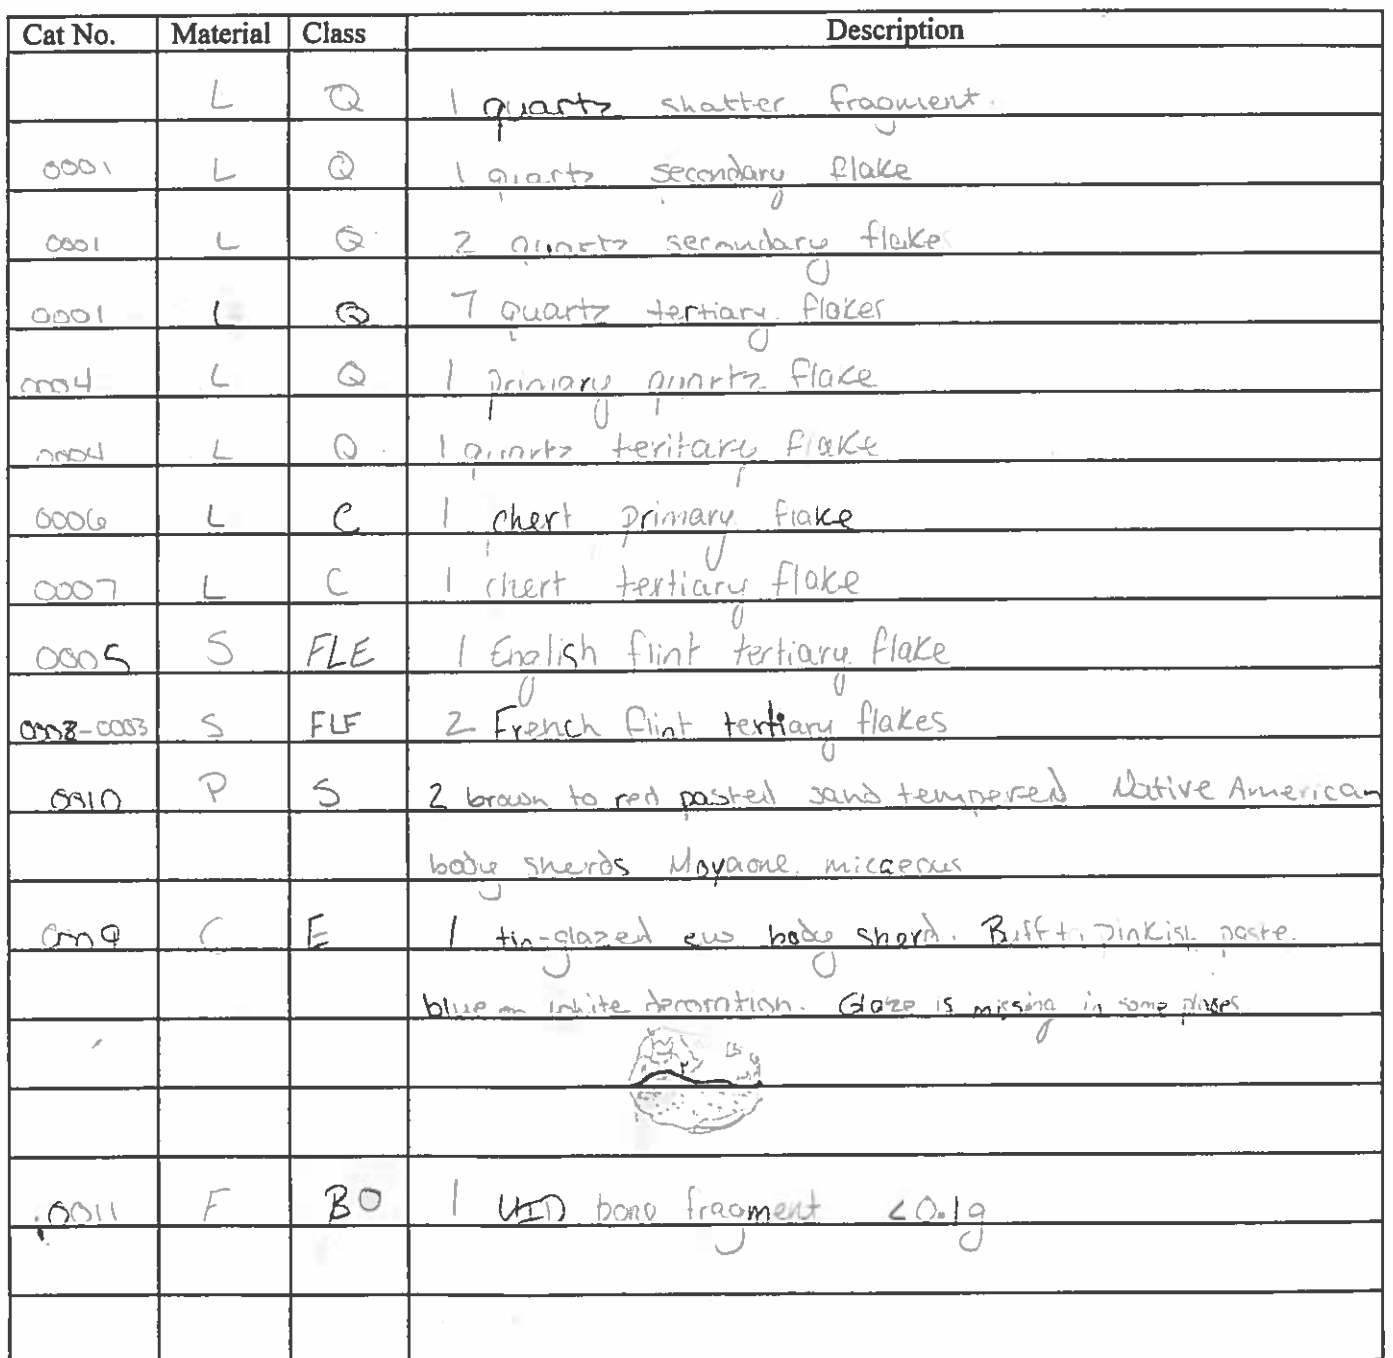 Cat No. Material Class Description
L Q 1 quartz shatter fragment.
0001 L Q 1 quartz secondary flake
0001 L Q 2 quartz secondary flakes
0001 L Q 7 quartz tertiary flakes
0004 L Q 1 primary quartz flake
0004 L Q 1 quartz teritary flake
0006 L C 1 chert primary flake
0007 L C 1 chert tertiary flake
0005 S FLE 1 English flint tertiary flake
0008-0003 S FLF 2 French flint tertiary flakes
0010 P S 2 brown to red pasted sand tempered Native American
body sherds Moyaone micaeous
0009 C E 1 tin-glazed ew body sherd. Buff to pinkish paste.
blue on white decoration. Glaze is missing in some places
.0011 F BO 1 UID bone fragment <0.1g